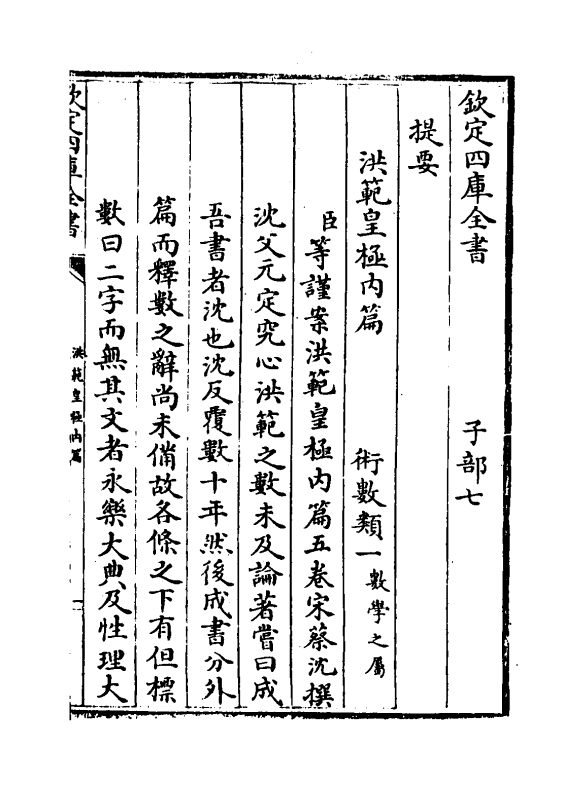 欽定四庫全書　子部七
提要
洪範皇極内篇　術數類一數學之屬
臣等謹案洪範皇極内篇五卷宋蔡沈撰
沈父元定究心洪範之數未及論著嘗曰成
吾書者沈也沈反覆數十年然後成書分外
篇而釋數之辭尚未備故各條之下有但標
數曰二字而無其文者永樂大典及性理大
欽定四庫全書　洪範皇極内篇　一